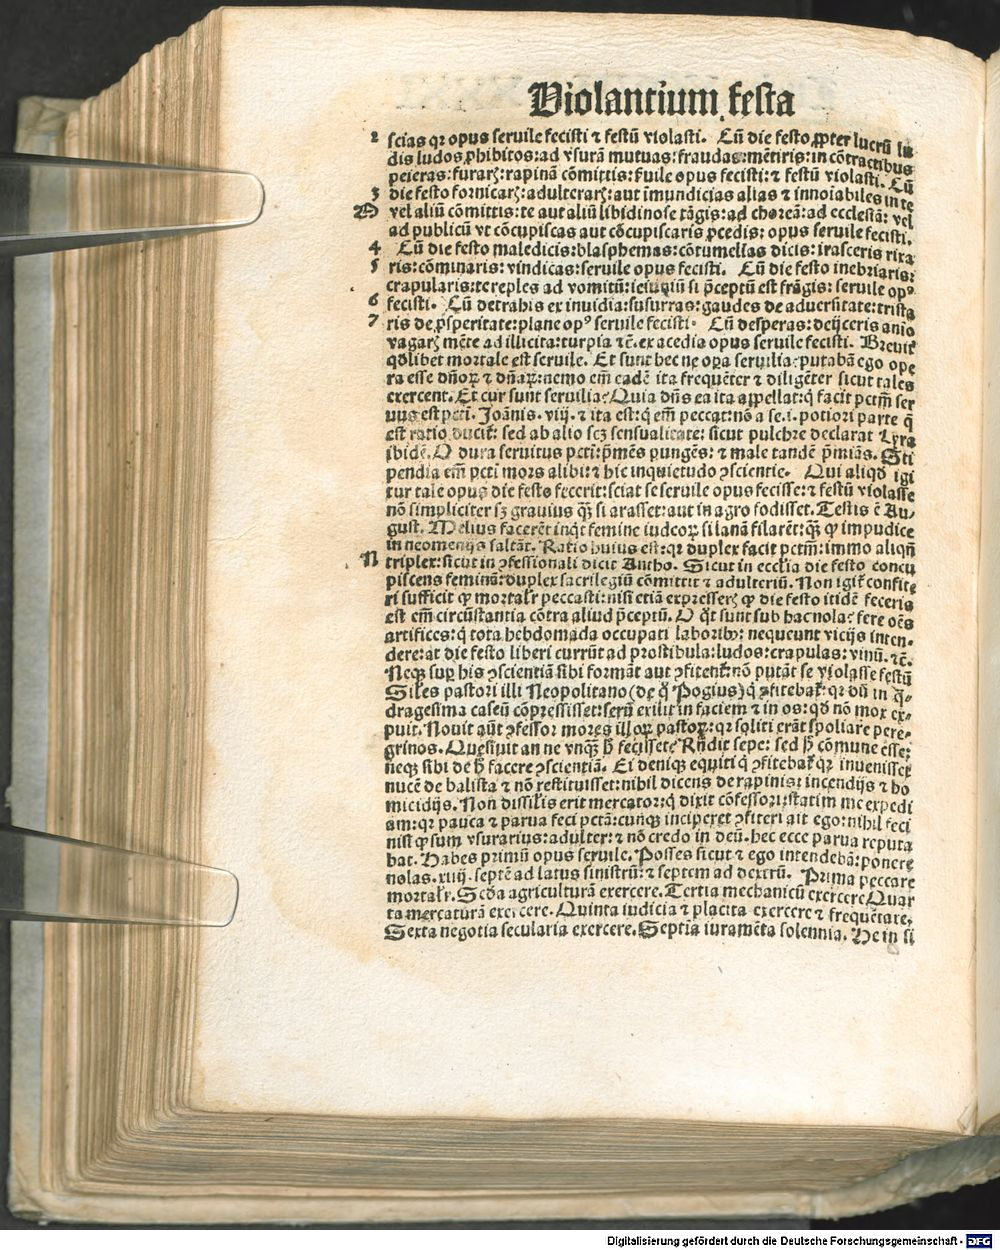 Violantium festa
2 scias qr opus seruile fecisti ⁊ festū violasti. Cū die festo ꝓpter lucrū lu
dis ludos ꝓhibitos: ad vsurā mutuas: fraudas: mētiris: in cōtractibus
peieras: furarꝭ: rapinā cōmittis: ẜuile opus fecisti: ⁊ festū violasti. Cū
3 die festo fornicarꝭ: adulterarꝭ: aut īmundicias alias ⁊ innoiabiles in te
vel aliū cōmittis: te aut aliū libidinose tāgis: ad choreā: ad ecclesiā: vel
ad publicū vt cōcupiscas aut cōcupiscaris ꝓcedis: opus seruile fecisti.
4 Cū die festo maledicis: blasphemas: cōtumelias dicis: irasceris rixa
5 ris: cōminaris: vindicas: seruile opus fecisti. Cū die festo inebriaris:
crapularis: te reples ad vomitū: ieiuniū si p̄ceptū est frāgis: seruile opꝰ
6 fecisti. Cū detrahis ex inuidia: susurras: gaudes de aduersitate: trista
7 ris de ꝓsperitate: plane opꝰ seruile fecisti. Cū desperas: deijceris anio
vagarꝭ mēte ad illicita: turpia ⁊c̄. ex acedia opus seruile fecisti. Breuiť
qdlibet mortale est seruile. Et sunt hec ne oꝑa seruilia: putabā ego ope
ra esse dn̄oꝝ ⁊ dn̄aꝝ: nemo em̄ eadē ita frequēter ⁊ diligēter sicut tales
exercent. Et cur sunt seruilia? Quia dn̄s ea ita appellat: q̇ facit pctm̄ ser
uus est pcti. Joānis. viij. ⁊ ita est: q̇ em̄ peccat: nō a se .i. potiori parte q̄
est ratio ducit̄: sed ab alio scꝫ sensualitate: sicut pulchre declarat Lyra
ibidē. O dura seruitus pcti: p̄mēs pungēs: ⁊ male tandē p̄miās. Sti
pendia em̄ pcti mors alibi: ⁊ hic inquietudo ꝯscientie. Qui aliqd igi
tur tale opus die festo fecerit: sciat se seruile opus fecisse: ⁊ festū violasse
nō simpliciter sꝫ grauius qꝫ si arasset: aut in agro fodisset. Testis ē Au/
gust. Melius facerēt inqt femine iudeoꝝ si lanā filarēt: qꝫ ꝙ impudice
in neomenijs saltāt. Ratio huius est: qr duplex facit pctm̄: immo aliqn̄
N triplex: sicut in ꝯfessionali dicit Antho. Sicut in ecclia die festo concu
piscens feminā: duplex sacrilegiū cōmittit ⁊ adulteriū. Non igiť confite
ri sufficit ꝙ mortalr̄ peccasti: nisi etiā expresserꝭ ꝙ die festo itidē feceris
est em̄ circūstantia cōtra aliud p̄ceptū. O q̄t sunt sub hac nola: fere oēs
artifices: q̇ tota hebdomada occupati laboribꝫ: nequeunt vicijs inten-
dere: at die festo liberi currūt ad prostibula: ludos: crapulas: vinū. ⁊c̄.
Neqꝫ suꝑ his ꝯscientiā sibi formāt aut ꝯfitent̄: nō putāt se violasse festū
Siľes pastori illi Neopolitano (de q̊ Pogius) q̇ ꝯfitebat̄: qr dū in q̄-
dragesima caseū cōpressisset: serū exilit in faciem ⁊ in os: qd nō mox ex-
puit. Nouit aūt ꝯfessor mores illoꝝ pastoꝝ: qr soliti erāt spoliare pere-
grinos. Quesiuit an ne vnqꝫ h̊ fecisset? Rn̄dit sepe: sed h̊ cōmune esse:
neqꝫ sibi de h̊ facere ꝯscientiā. Ei deniqꝫ equiti q̇ ꝯfitebat̄ qr inuenisset
nucē de balista ⁊ nō restituisset: nihil dicens de rapinis: incendijs ⁊ ho
micidijs. Non dissiľis erit mercator: q̇ dixit cōfessori: statim me expedi
am: qr pauca ⁊ parua feci pctā: cunqꝫ inciperet ꝯfiteri ait ego: nihil feci
nisi ꝙ sum vsurarius: adulter: ⁊ nō credo in deū. hec ecce parua reputa
bat. Habes primū opus seruile. Posses sicut ⁊ ego intendebā: ponere
nolas. xiiij. septē ad latus sinistrū: ⁊ septem ad dextrū. Prima peccare
mortalr̄. Scd̄a agriculturā exercere. Tertia mechanicū exercere Quar
ta mercaturā exercere. Quinta iudicia ⁊ placita exercere ⁊ frequētare.
Sexta negotia secularia exercere. Septīa iuramēta solennia. He in si
Digitalisierung gefördert durch die Deutsche Forschungsgemeinschaft - DFG